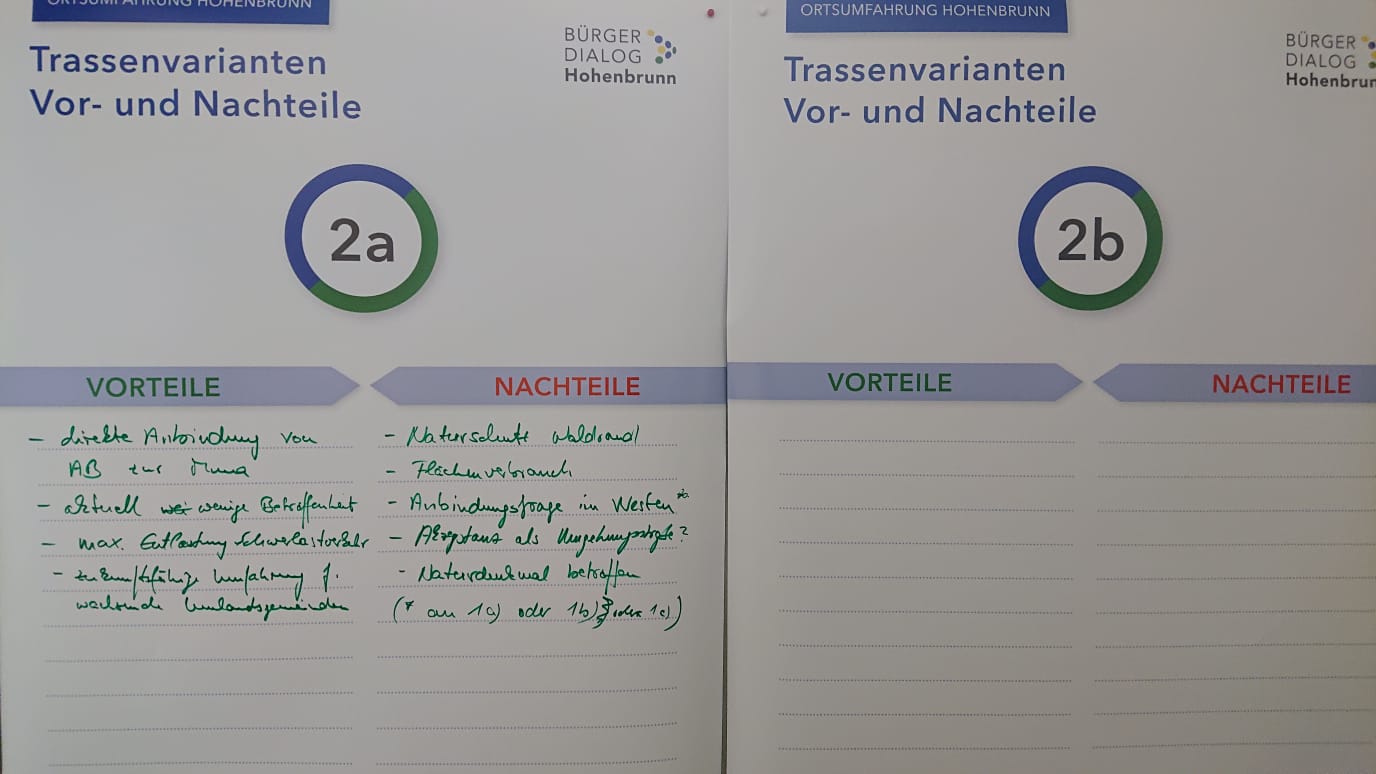 ORTSUMFAHRUNG HOHENBRUNN
Trassenvarianten
Vor- und Nachteile
BÜRGER
DIALOG
Hohenbrunn
2a
VORTEILE
- direkte Anbindung von
AB zur Muna
- aktuell wenige Betroffenheit
- max. Entlastung Schwerlastverkehr
- zukunftsfähige Umfahrung f.
wachsende Umlandsgemeinden
NACHTEILE
- Naturschutz Waldrand
- Flächenverbrauch
- Anbindungsfrage im Westen *
- Akzeptanz als Umgehungsstraße?
- Naturdenkmal betroffen
(* an 1a) oder 1b) oder 1c))
ORTSUMFAHRUNG HOHENBRUNN
Trassenvarianten
Vor- und Nachteile
BÜRGER
DIALOG
Hohenbrun
2b
VORTEILE
NACHTEILE